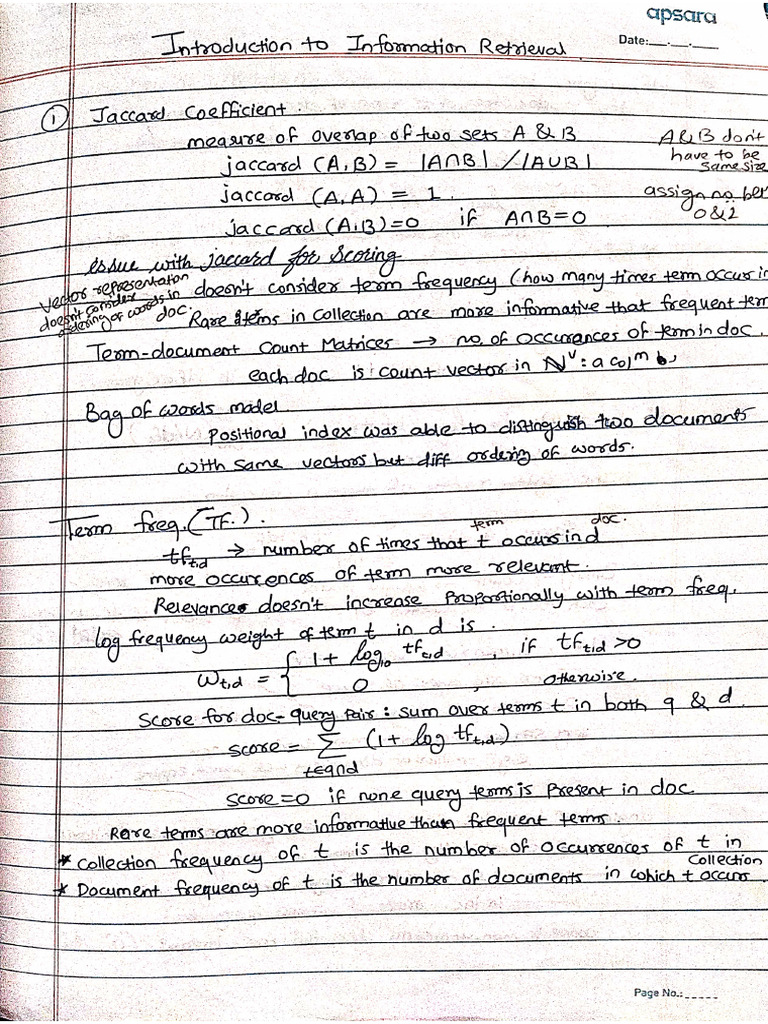 apsara
Introduction to Information Retrieval.
Date:__.__.____
① Jaccard Coefficient.
measure of overlap of two sets A & B
jaccard (A,B) = |A∩B| / |A∪B|
A & B don't
have to be
same size
jaccard (A,A) = 1.
jaccard (A,B)=0 if A∩B=0
assign no. bet
0&1
issue with jaccard for scoring
doesn't consider term frequency (how many times term occur in
doc.
Vector representation
doesn't consider
ordering of words in
Rare items in collection are more informative that frequent term
Term-document Count Matrices → no. of occurances of term in doc.
each doc is count vector in ℕᵛ: a colᵐ b
Bag of words model
Positional index was able to distinguish two documents
with same vectors but diff ordering of words.
Term freq. (TF.).
tft,d → number of times that term t occurs in doc. d
more occurrences of term more relevant.
Relevance doesn't increase proportionally with term freq.
log frequency weight of term t in d is.
Wt,d = { 1 + log10 tft,d , if tft,d >0
0 , otherwise.
Score for doc-query pair: sum over terms t in both q & d
score = Σ (1 + log tft,d)
t∈q∩d
score=0 if none query terms is present in doc.
Rare terms are more informative than frequent terms.
* Collection frequency of t is the number of occurrences of t in
Collection
* Document frequency of t is the number of documents in which t occurs
Page No.:_____